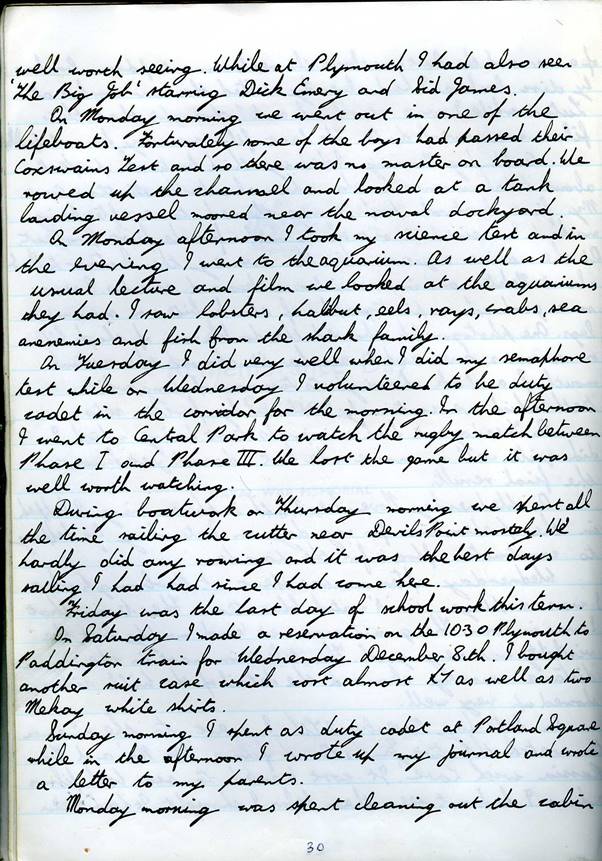 well worth seeing. While at Plymouth I had also seen
'The Big Job' starring Dick Emery and Sid James.
On Monday morning we went out in one of the
lifeboats. Fortunately some of the boys had passed their
Coxswains Test and so there was no master on board. We
rowed up the channell and looked at a tank
landing vessel moored near the naval dockyard.
On Monday afternoon I took my science test and in
the evening I went to the aquarium. As well as the
usual lecture and film we looked at the aquariums
they had. I saw lobsters, halbut, eels, rays, crabs, sea
anenemies and fish from the shark family.
On Tuesday I did very well when I did my semaphore
test while on Wednesday I volunteered to be duty
cadet in the corridor for the morning. In the afternoon
I went to Central Park to watch the rugby match between
Phase I and Phase III. We lost the game but it was
well worth watching.
During boatwork on Thursday morning we spent all
the time sailing the cutter near Devils Point mostely. We
hardly did any rowing and it was the best days
sailing I had had since I had come here.
Friday was the last day of school work this term.
On Saturday I made a reservation on the 1030 Plymouth to
Paddington train for Wednesday December 8th. I bought
another suit case which cost almost £7 as well as two
Mekay white shirts.
Sunday morning I spent as duty cadet at Portland Square
while in the afternoon I wrote up my journal and wrote
a letter to my parents.
Monday morning was spent cleaning out the cabin
30